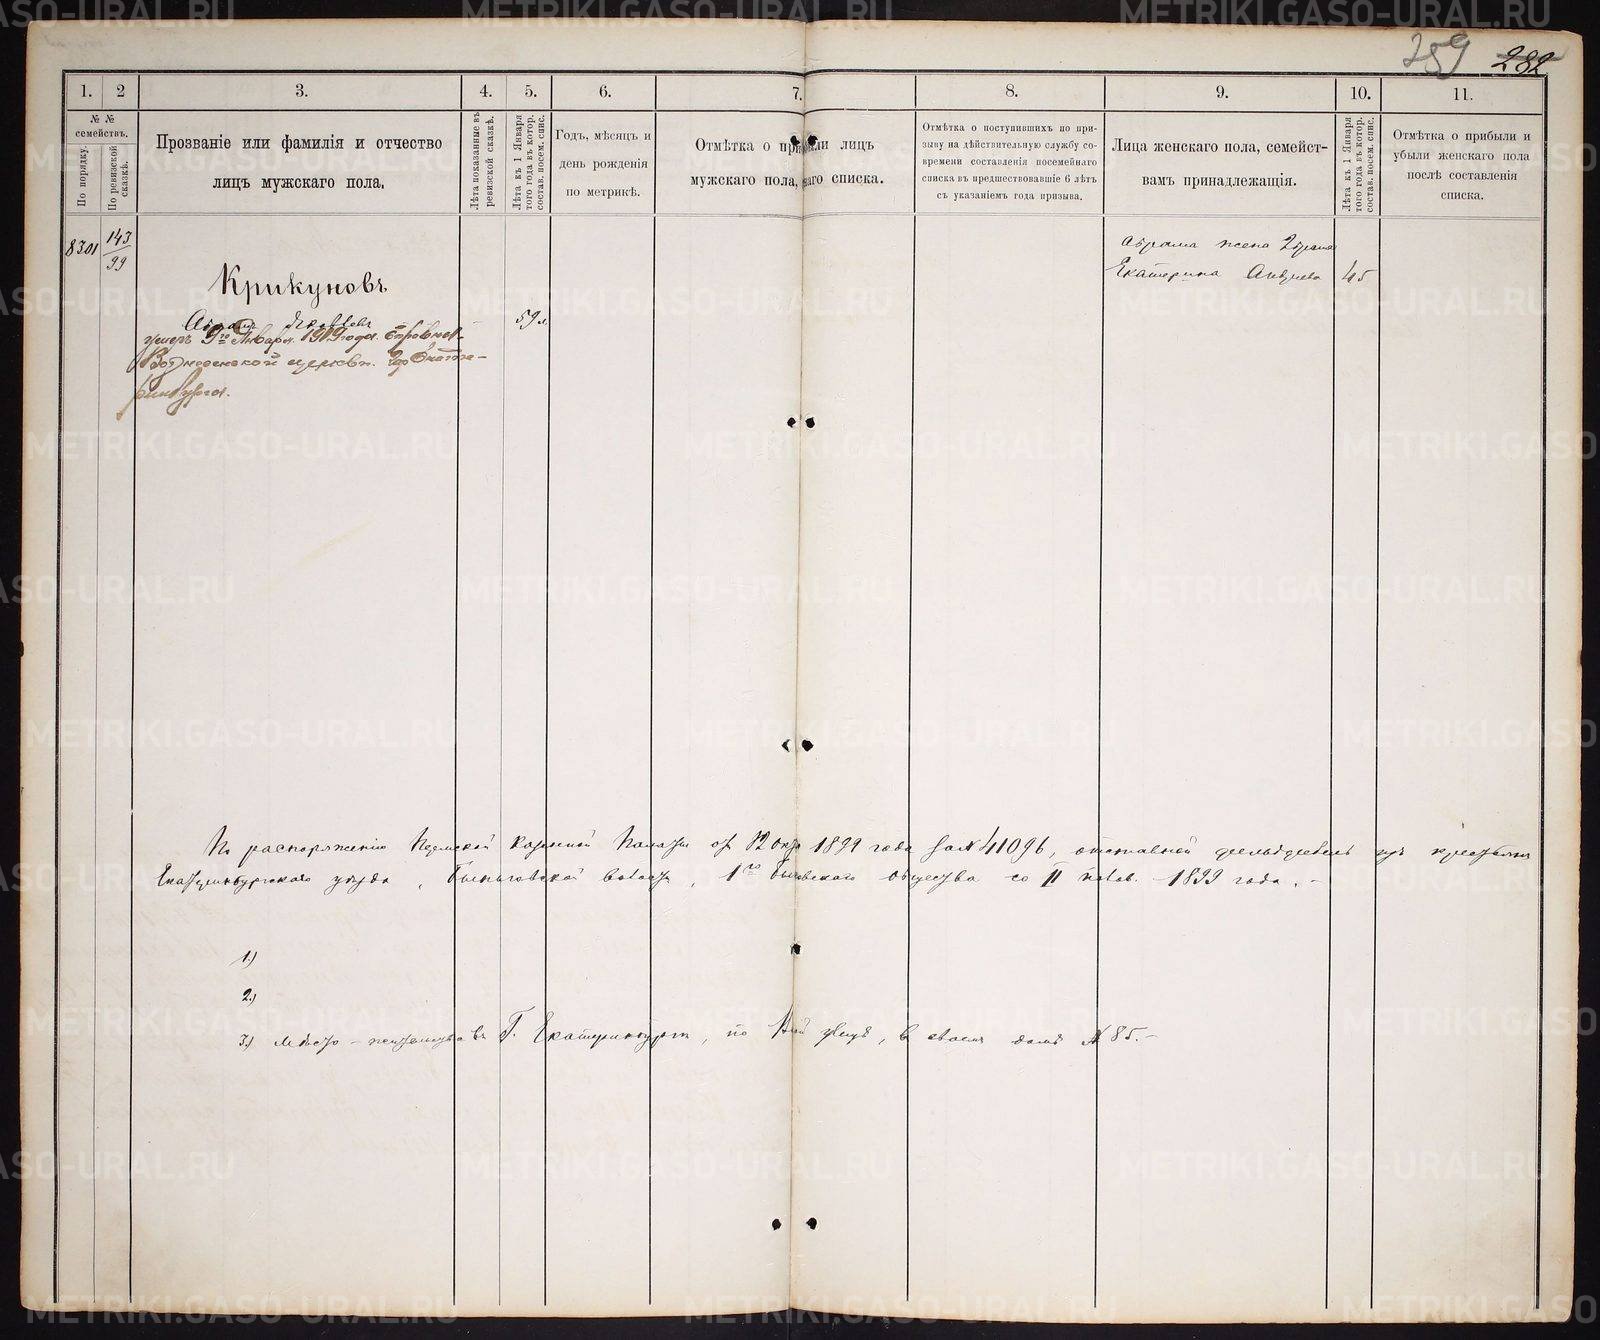 259 282
1. 2 3. 4. 5. 6. 7. 8. 9. 10. 11.
№ №
семействъ.
По порядку.
По ревизской сказкѣ.
Прозваніе или фамилія и отчество
лицъ мужскаго пола.
Лѣта показанные въ
ревизской сказкѣ.
Лѣта къ 1 Января
того года въ котор.
состав. посем. спис.
Годъ, мѣсяцъ и
день рожденія
по метрикѣ.
Отмѣтка о лицъ
мужскаго пола, списка.
Отмѣтка о поступившихъ по при-
зыву на дѣйствительную службу со-
времени составленія посемейнаго
списка въ предшествовавшіе 6 лѣтъ
съ указаніемъ года призыва.
Лица женскаго пола, семейст-
вамъ принадлежащія.
Лѣта къ 1 Января
того года въ котор.
состав. посем. спис.
Отмѣтка о прибыли и
убыли женскаго пола
послѣ составленія
списка.
8301 143/99
Крикуновъ
59 л.
умеръ 9го Января 1919 года
Вознесенской церкви. гор Екате-
ринбурга.
Абрама жена
Екатерина 45
По распоряженію Пермской Казенной Палаты от 12 1899 года за № 41096, отставной изъ крестьян
Екатеринбургскаго уѣзда, волости, 1го общества со II полов. 1899 года. –
1.)
2.)
3.) Мѣсто-жительства въ Г. Екатеринбургѣ, по улицѣ, в своем домѣ № 85. –
METRIKI.GASO-URAL.RU